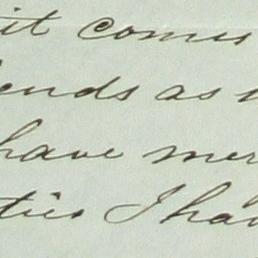 it comes
ends as
have mer
ties I hav